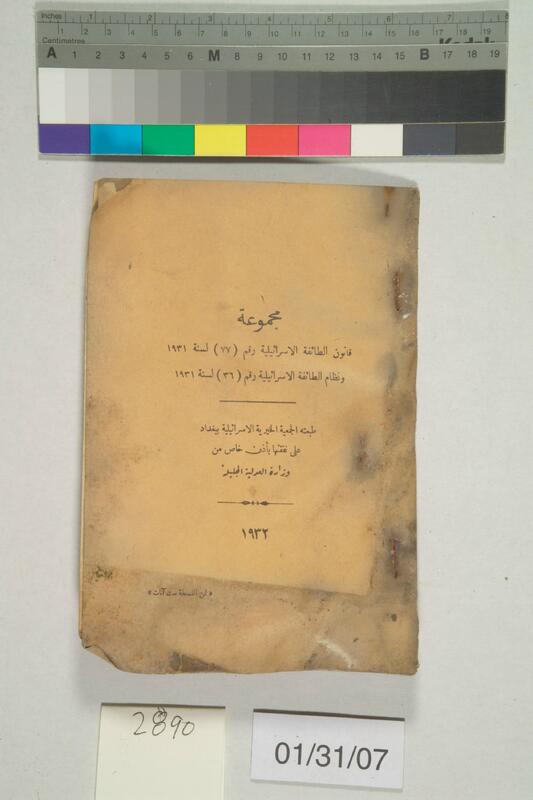 Inches 1 2 3 4 5 6 7 8
Centimetres 1 2 3 4 5 6 7 8 9 10 11 12 13 14 15 16 17 18 19
Kodak
A 1 2 3 4 5 6 M 8 9 10 11 12 13 14 15 B 17 18 19
مجموعة
قانون الطائفة الاسرائيلية رقم (٧٧) لسنة ١٩٣١
ونظام الطائفة الاسرائيلية رقم (٣٦) لسنة ١٩٣١
طبعته الجمعية الخيرية الاسرائيلية ببغداد
على نفقتها بأذن خاص من
وزارة العدلية الجليلة
١٩٣٢
« ثمن النسخة ست آنات »
2890
01/31/07